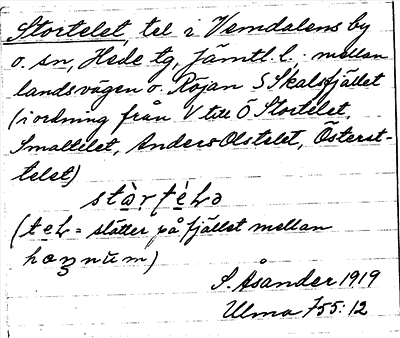 Stortelet, tel i Vemdalens by
o. sn, Hede tg, Jämtl. l.: mellan
landsvägen o. Röjan S Skalsfjället
(i ordning från V till Ö Stortelet,
Smaltelet, Anders Olstelet, Österst-
telet)
(teL = slåtter på fjället mellan
S. Åsander 1919
Ulma 755:12